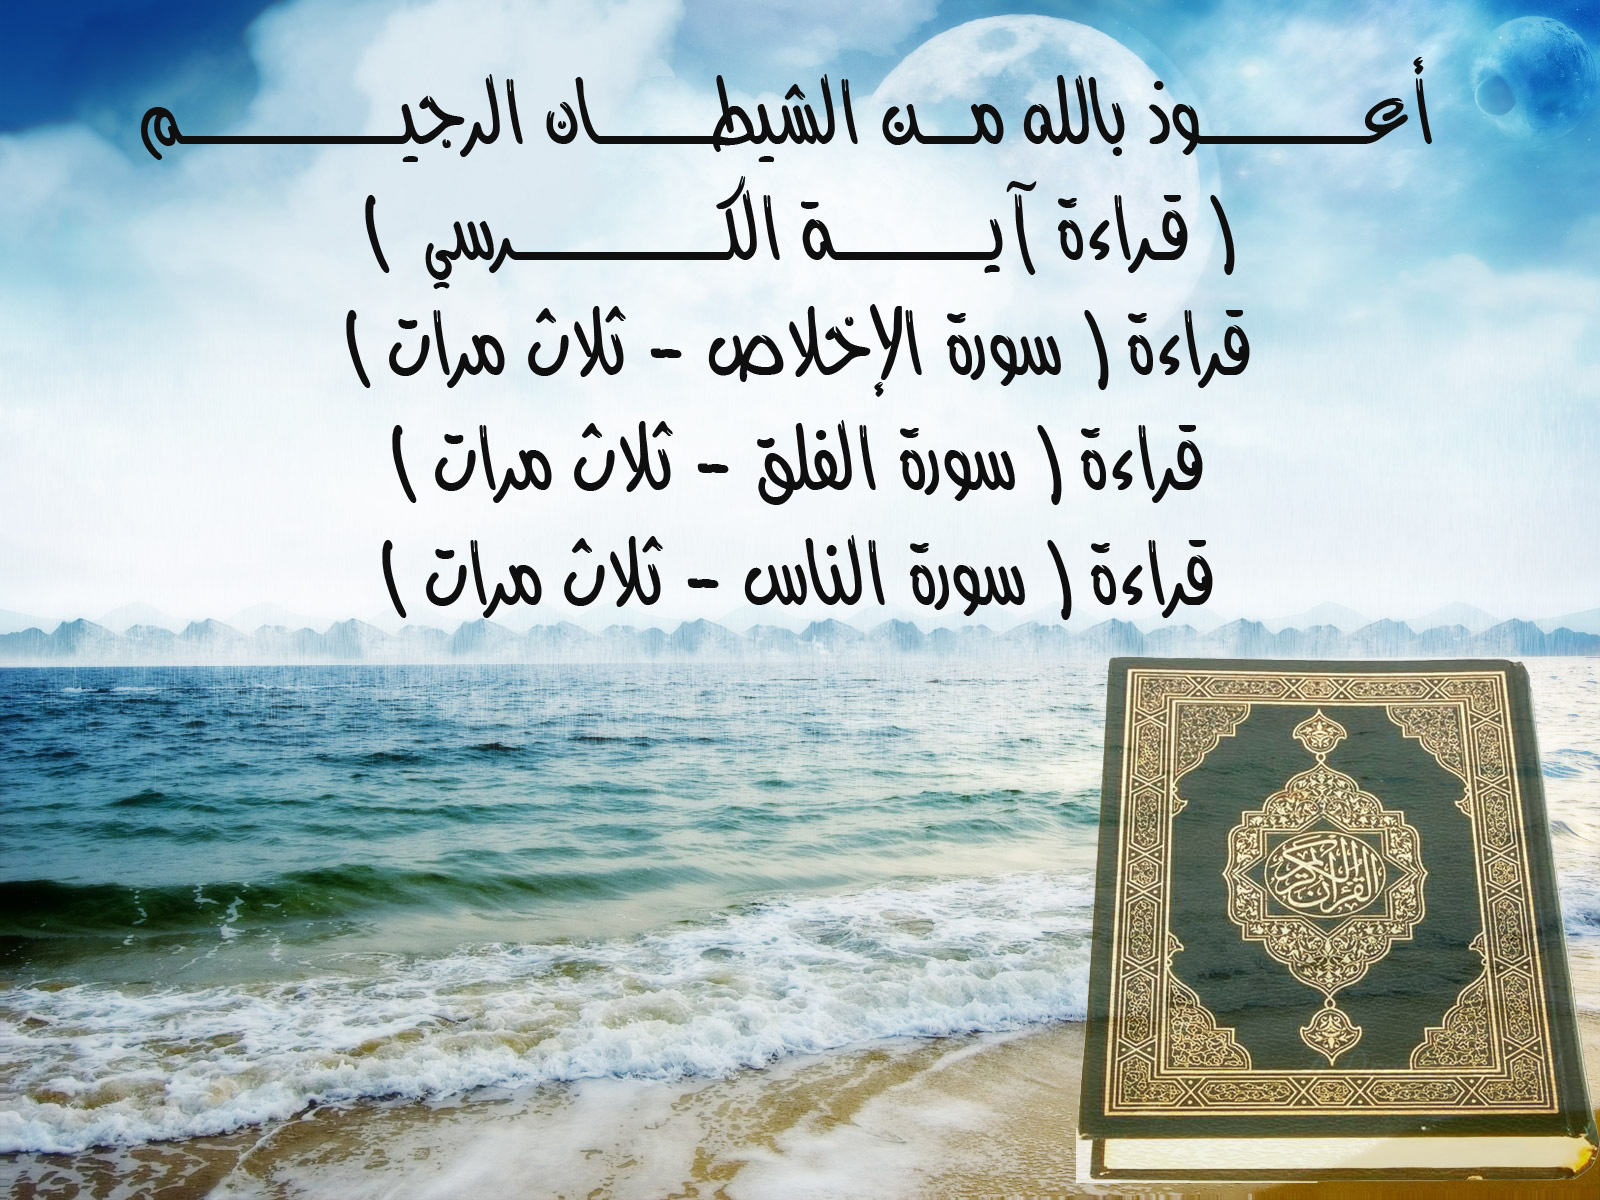 أعـــــوذ بالله مـن الشيطــــان الرجيـــــــم
( قراءة آيـــــة الكـــــــرسي )
قراءة ( سورة الإخلاص - ثلاث مرات )
قراءة ( سورة الفلق - ثلاث مرات )
قراءة ( سورة الناس - ثلاث مرات )
القرآن الكريم